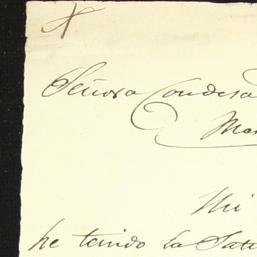 Señora Condesa
Mi
he tenido la Sati